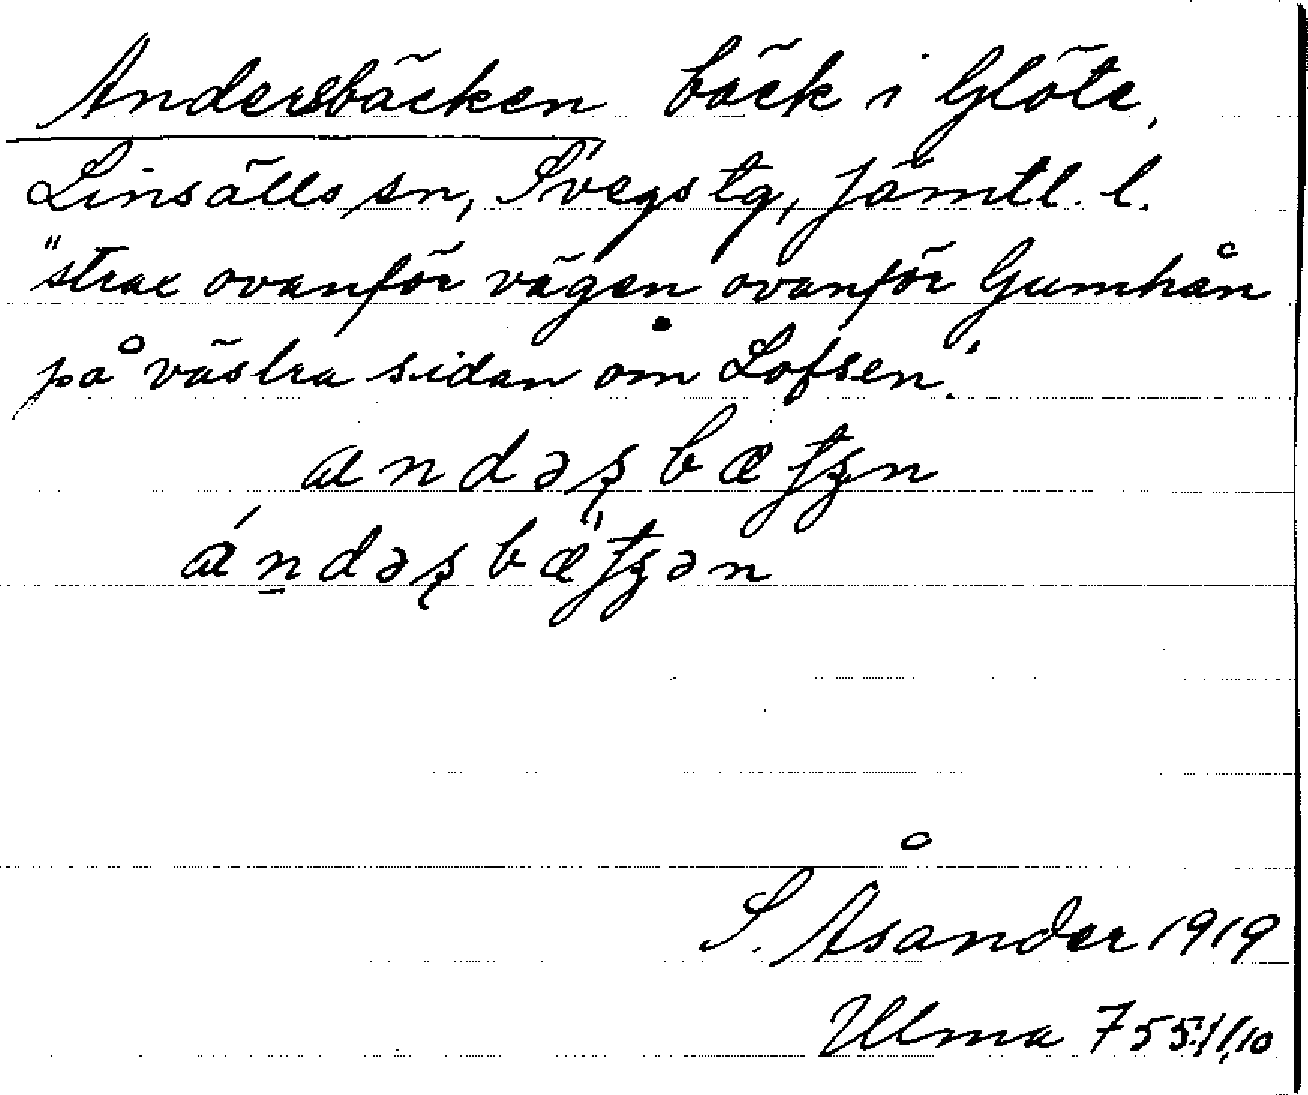 Andersbäcken bäck i Glöte,
Linsälls sn, Svegs tg, Jämtl. l.
"strax ovanför vägen ovanför Gumhån
på västra sidan om Lofsen."
S. Åsander 1919
Ulma 755:1,10